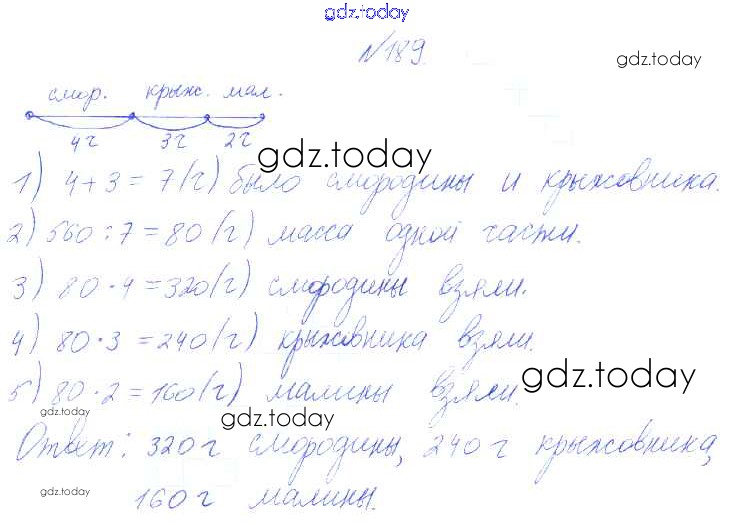 gdz.today
№189.
gdz.today
смор. крыж. мал.
4ч 3ч 2ч
gdz.today
1) 4+3=7(ч) было смородины и крыжовника.
2) 560:7=80(г) масса одной части.
3) 80·4=320(г) смородины взяли.
4) 80·3=240(г) крыжовника взяли.
gdz.today
5) 80·2=160(г) малины взяли.
gdz.today gdz.today
Ответ: 320г смородины, 240г крыжовника,
gdz.today
160г малины.